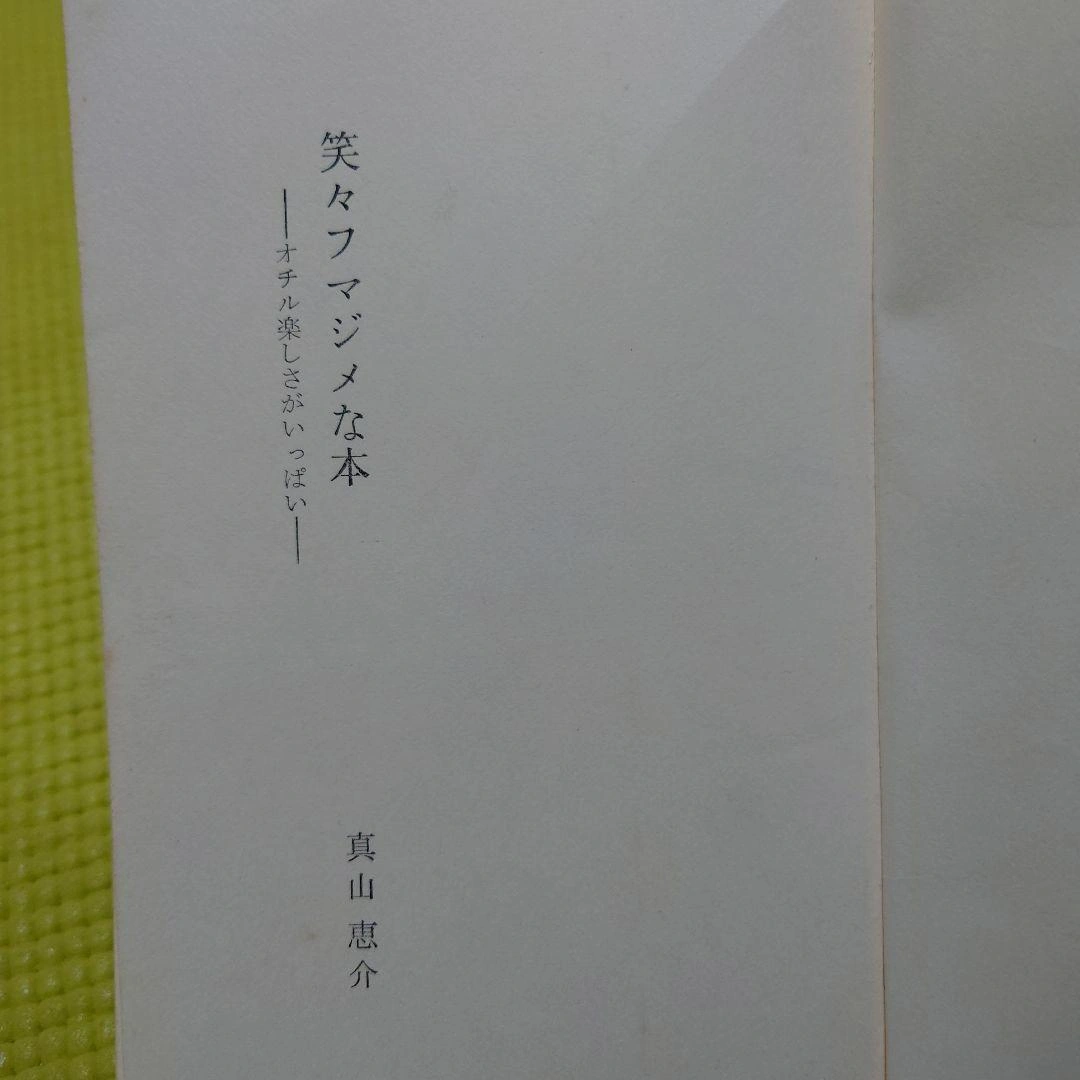 笑々フマジメな本
―オチル楽しさがいっぱい―
真山恵介